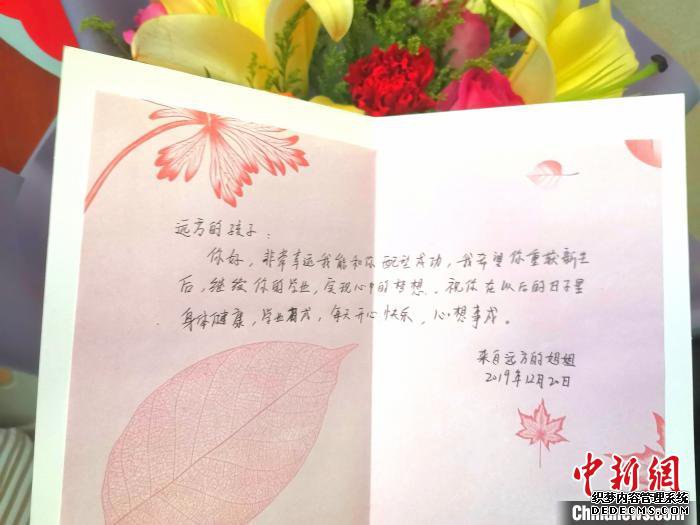 远方的孩子：
你好，非常幸运我能和你配型成功，我希望你重获新生
后，继续你的学业，实现心中的梦想。祝你在以后的日子里
身体健康，学业有成，每天开心快乐，心想事成。
来自远方的姐姐
2019年12月20日
中新網
织梦内容管理系统
DEDECMS.COM